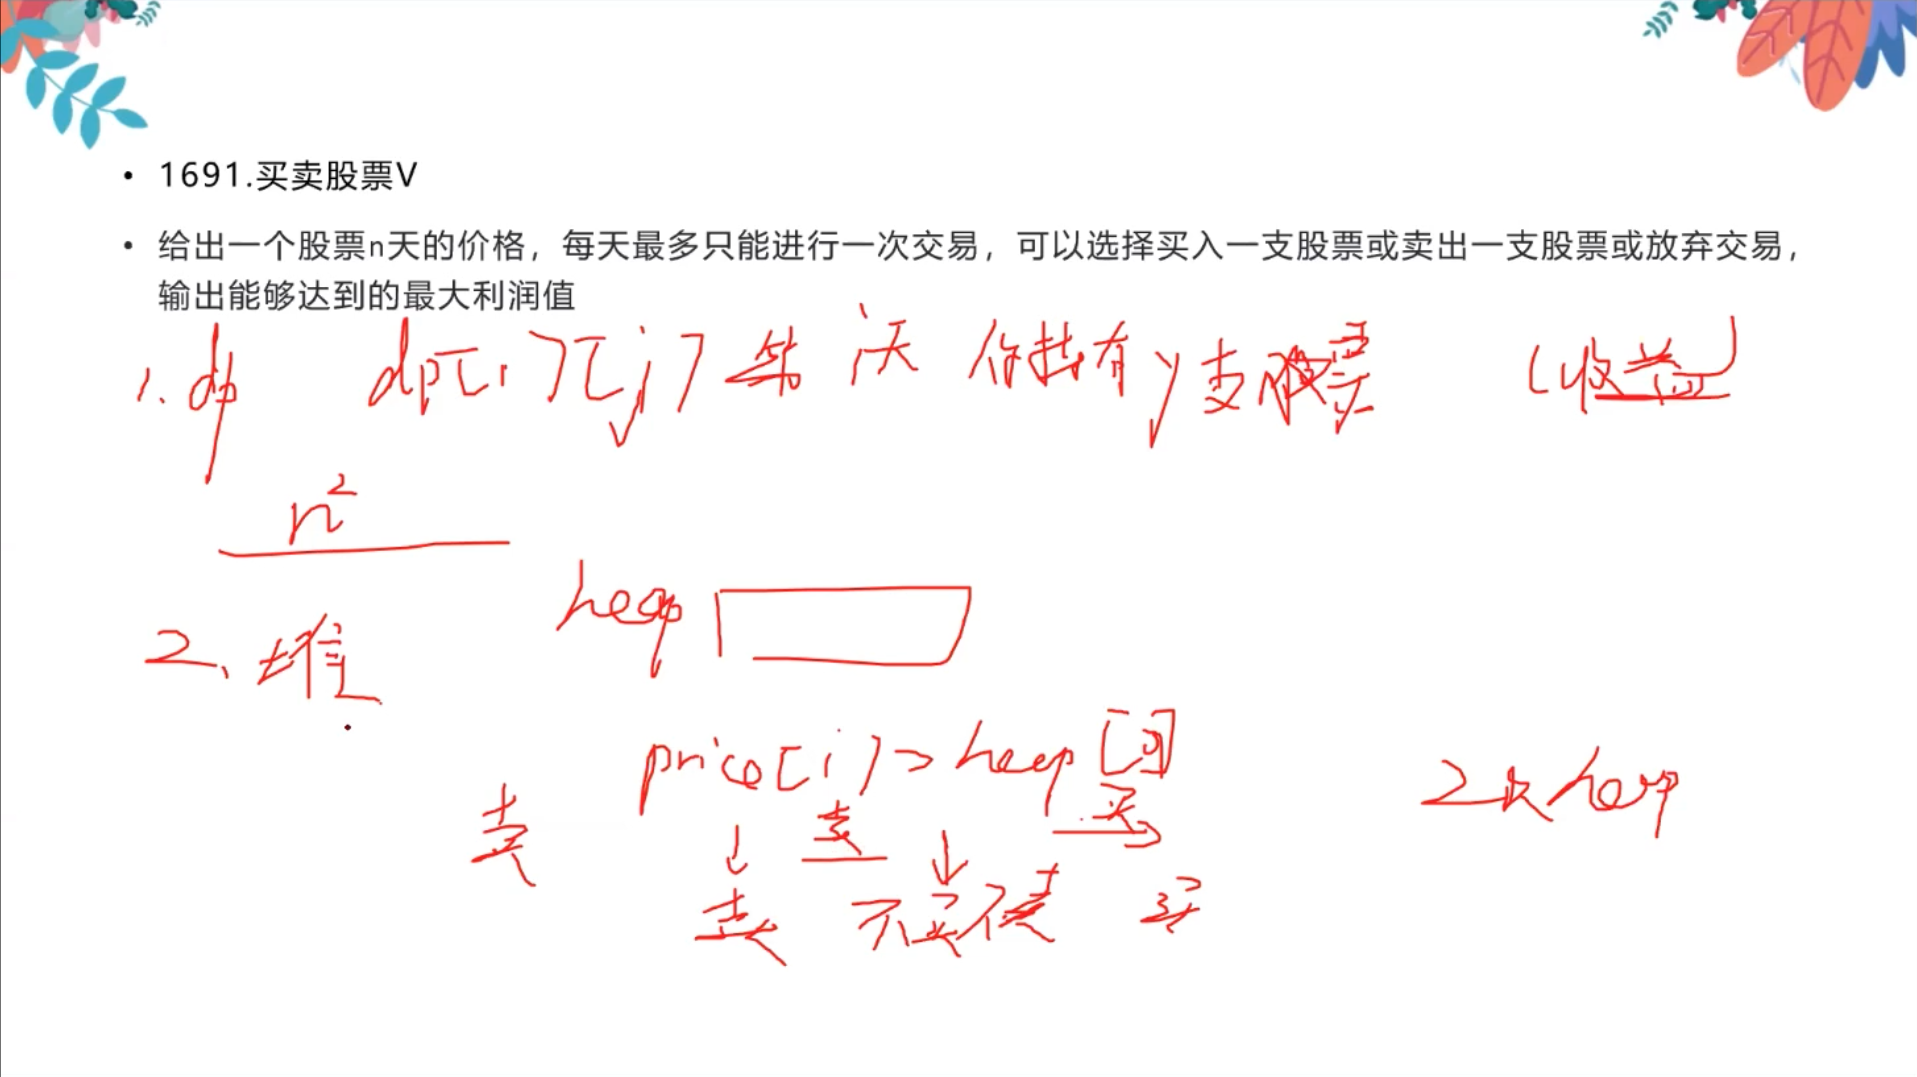 • 1691.买卖股票V
• 给出一个股票n天的价格，每天最多只能进行一次交易，可以选择买入一支股票或卖出一支股票或放弃交易，
输出能够达到的最大利润值
1. dp dp[i][j] 第i天 你持有j支股票 (收益)
n²
heap
2、堆
price[i] > heap[0]
卖 卖 买 2次heap
卖 不买不卖 买